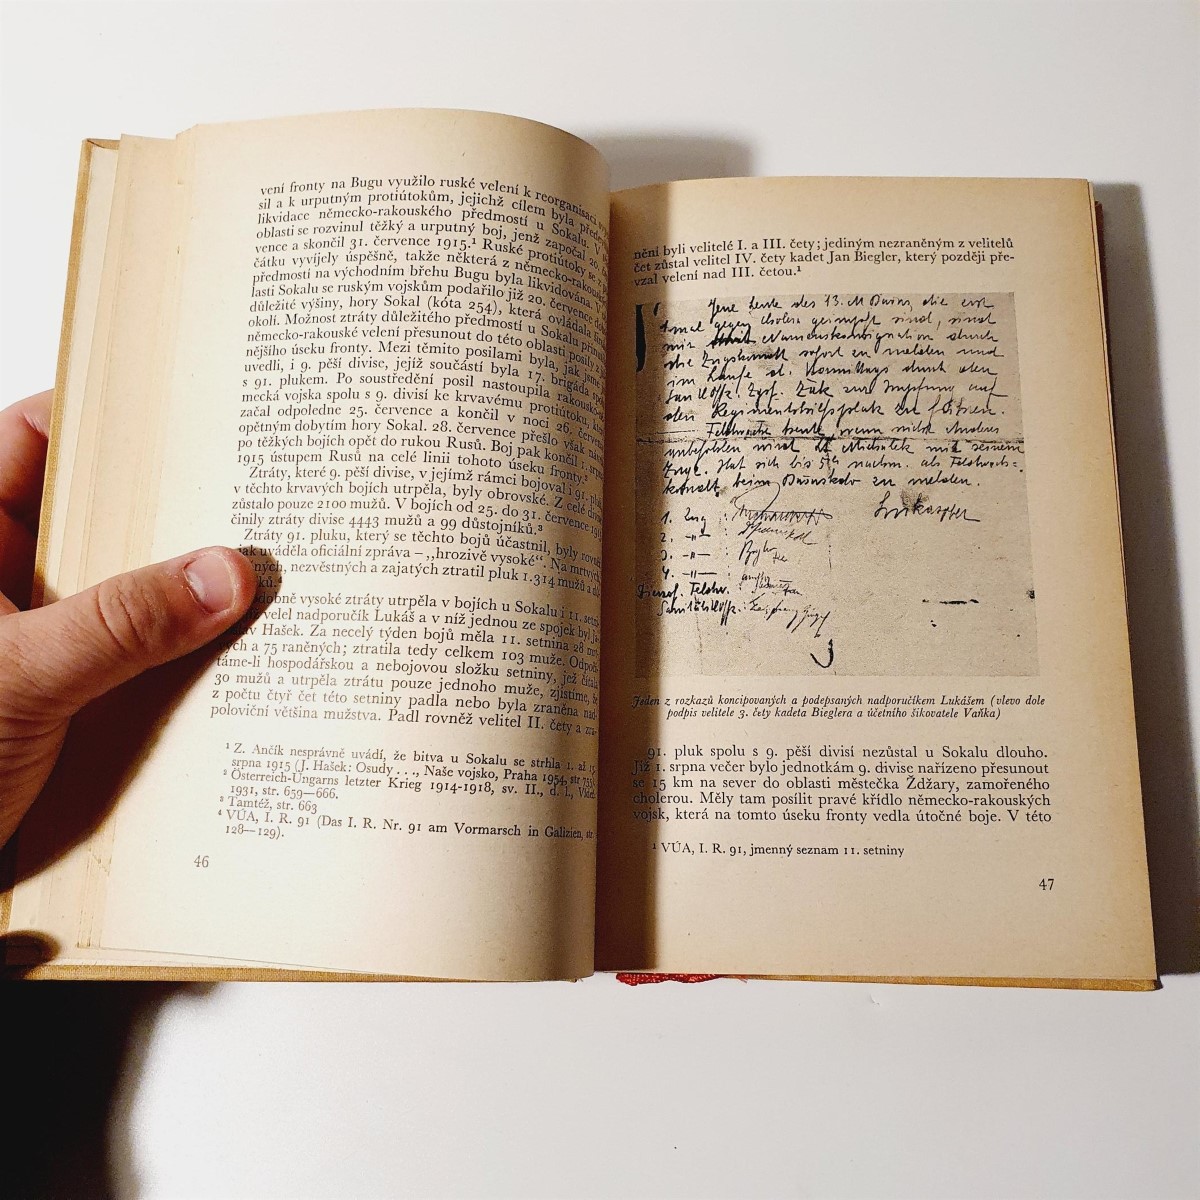 vení fronty na Bugu využilo ruské velení k reorganisaci
sil a k urputným protiútokům, jejichž cílem byla
likvidace německo-rakouského předmostí u Sokalu. V
oblasti se rozvinul těžký a urputný boj, jenž započal 20.
vence a skončil 31. července 1915.¹ Ruské protiútoky se z
čátku vyvíjely úspěšně, takže některá z německo-rakouských
předmostí na východním břehu Bugu byla likvidována. V
lasti Sokalu se ruským vojskům podařilo již 20. července
důležité výšiny, hory Sokal (kóta 254), která ovládala
okolí. Možnost ztráty důležitého předmostí u Sokalu
německo-rakouské velení přesunout do této oblasti posily z
nějšího úseku fronty. Mezi těmito posilami byla, jak jsme
uvedli, i 9. pěší divise, jejíž součástí byla 17. brigáda
s 91. plukem. Po soustředění posil nastoupila
mecká vojska spolu s 9. divisí ke krvavému protiútoku,
začal odpoledne 25. července a končil v noci 26.
opětným dobytím hory Sokal. 28. července přešlo však
po těžkých bojích opět do rukou Rusů. Boj pak končil 1. srpna
1915 ústupem Rusů na celé linii tohoto úseku fronty.²
Ztráty, které 9. pěší divise, v jejímž rámci bojoval i 91. pluk
v těchto krvavých bojích utrpěla, byly obrovské. Z celé divise
zůstalo pouze 2100 mužů. V bojích od 25. do 31. července
činily ztráty divise 4443 mužů a 99 důstojníků.³
Ztráty 91. pluku, který se těchto bojů účastnil, byly
jak uváděla oficiální zpráva – „hrozivě vysoké“. Na mrtvých,
nezvěstných a zajatých ztratil pluk 1.314 mužů a
vysoké ztráty utrpěla v bojích u Sokalu i 11. setnina
velel nadporučík Lukáš a v níž jednou ze spojek byl
Hašek. Za necelý týden bojů měla 11. setnina 28
a 75 raněných; ztratila tedy celkem 103 muže.
táme-li hospodářskou a nebojovou složku setniny, jež čítala
30 mužů a utrpěla ztrátu pouze jednoho muže, zjistíme, že
z počtu čtyř čet této setniny padla nebo byla zraněna
poloviční většina mužstva. Padl rovněž velitel II. čety a
¹ Z. Ančík nesprávně uvádí, že bitva u Sokalu se strhla 1. až 15.
srpna 1915 (J. Hašek: Osudy . . ., Naše vojsko, Praha 1954, str 755)
² Österreich-Ungarns letzter Krieg 1914-1918, sv. II., d. I.,
1931, str. 659—666.
³ Tamtéž, str. 663
⁴ VÚA, I. R. 91 (Das I. R. Nr. 91 am Vormarsch in Galizien, str.
128—129).
46
nění byli velitelé I. a III. čety; jediným nezraněným z velitelů
čet zůstal velitel IV. čety kadet Jan Biegler, který později pře-
vzal velení nad III. četou.¹
Jene Leute des 13. M Baons, die erst
2mal gegen Cholera geimpft sind, sind
mir durch
die Zugskmdt sofort zu melden und
im Laufe d. Vormittags durch den
San Uoffz. Zgsf. Zak zur Impfung auf
den Regimentshilfsplatz zu führen.
Feldwache heute, wenn nicht Anderes
anbefohlen wird Lt Michalek mit seinem
Zuge. Hat sich bis 5h nachm. als Feldwach-
kmdt beim Baonskdo zu melden.
1. Zug
2. -"-
3. -"-
4. -"-
Jeden z rozkazů koncipovaných a podepsaných nadporučíkem Lukášem (vlevo dole
podpis velitele 3. čety kadeta Bieglera a účetního šikovatele Vaňka)
91. pluk spolu s 9. pěší divisí nezůstal u Sokalu dlouho.
Již 1. srpna večer bylo jednotkám 9. divise nařízeno přesunout
se 15 km na sever do oblasti městečka Ždžary, zamořeného
cholerou. Měly tam posílit pravé křídlo německo-rakouských
vojsk, která na tomto úseku fronty vedla útočné boje. V této
¹ VÚA, I. R. 91, jmenný seznam 11. setniny
47